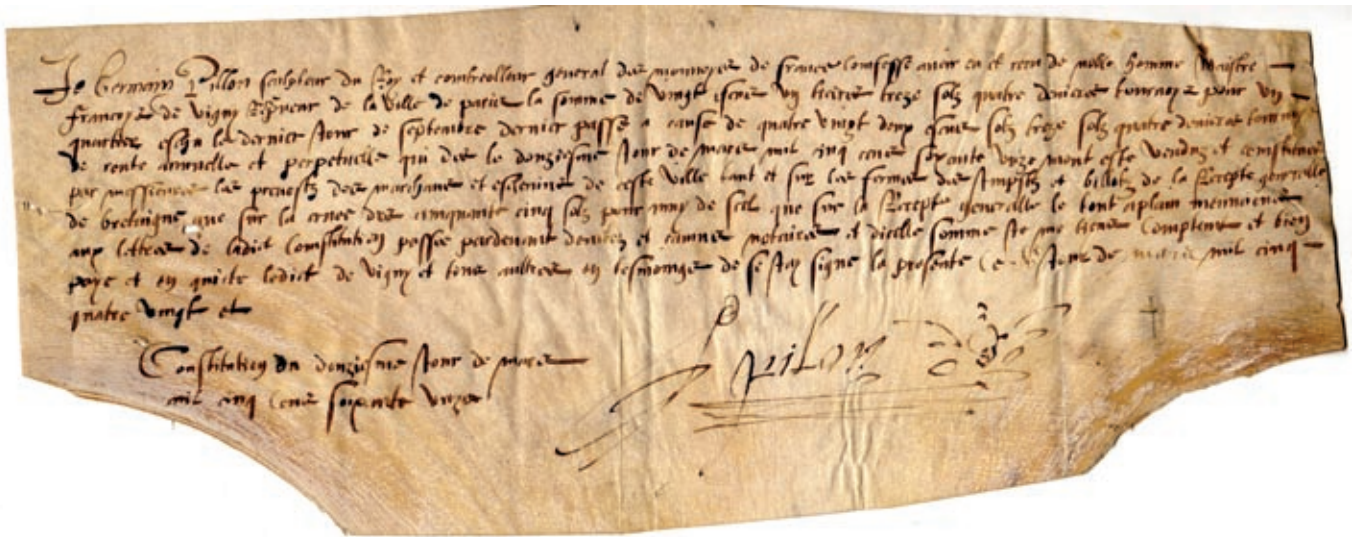 Je Germain Pillon sculpteur du Roy et controlleur general des monnoyes de france confesse avoir eu et receu de noble homme Maistre
francoys de vigny Receveur de la ville de paris la somme de vingt escus ung tiers treze solz quatre deniers tournoys pour ung
quartier escheu le dernier jour de septembre dernier passé a cause de quatre vingt deux escus solz treze solz quatre deniers tournoys
de rente annuelle et perpetuelle qui des le donziesme jour de mars mil cinq cens soixante unze mont esté venduz et constituez
par messieurs les prevostz des marchans et eschevins de ceste ville tant et sur les fermes des impostz et billotz de la Recepte generalle
de bretaigne que sur la creue des cinquante cinq solz pour muy de scel que sur la Recepte generalle le tout aplain mentionné
aux lettres de ladict constitution passée pardevant et camus notaires et dicelle somme je me tiens comptent et bien
payé et en quicte ledict de vigny et tous aultres en tesmoinge de ce jay signé la presente jour de mars mil cinq
quatre vingt et
Constitution du donziesme jour de mars
mil cinq cens soixante unze
pilon